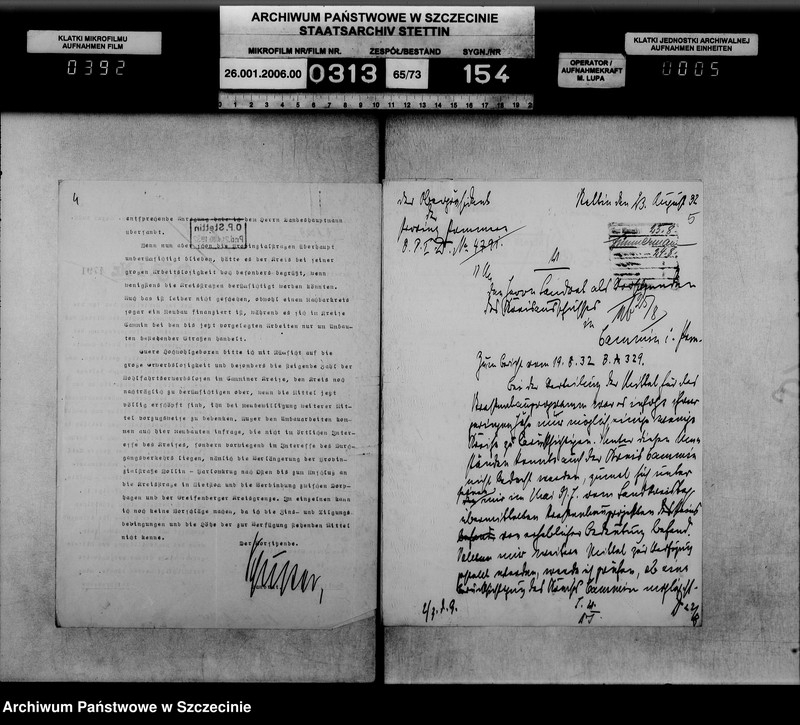 ARCHIWUM PAŃSTWOWE W SZCZECINIE
STAATSARCHIV STETTIN
KLATKI MIKROFILMU
AUFNAHMEN FILM
0392
MIKROFILM NR/FILM NR.
ZESPÓŁ/BESTAND
SYGN./NR
26.001.2006.00
0313
65/73
154
0 1 2 3 4 5 6 7 8 9 10 11 12 13 14 15 16 17 18 19 20
OPERATOR /
AUFNAHMEKRAFT
M. LUPA
KLATKI JEDNOSTKI ARCHIWALNEJ
AUFNAHMEN EINHEITEN
0005
4
entsprechende Anregung habe ich dem Herrn Landeshauptmann
übersandt.
O.P. Stettin
Wenn nun aber schon die Provinzialstraßen überhaupt
unberücksichtigt blieben, hätte es der Kreis bei seiner
großen Arbeitslosigkeit doch besonders begrüßt, wenn
wenigstens die Kreisstraßen berücksichtigt worden wären.
Auch das ist leider nicht geschehen, obwohl einem Nachbarkreis
sogar ein Neubau finanziert ist, während es sich im Kreise
Cammin bei den bis jetzt vorgelegten Arbeiten nur um Umbau-
ten bestehender Straßen handelt.
Eure Hochwohlgeboren bitte ich mit Rücksicht auf die
große Erwerbslosigkeit und besonders die steigende Zahl der
Wohlfahrtserwerbslosen im Camminer Kreise, den Kreis noch
nachträglich zu berücksichtigen oder, wenn die Mittel jetzt
völlig erschöpft sind, ihn bei Neubewilligung weiterer Mit-
tel vorzugsweise zu bedenken. Außer den Umbauarbeiten kom-
men auch hier Neubauten infrage, die nicht im örtlichen Inter-
esse des Kreises, sondern vorwiegend im Interesse des Durch-
gangsverkehrs liegen, nämlich die Verlängerung der Provin-
zialstraße Wollin - Parlowkrug nach Osten bis zum Anschluß an
die Kreisstraße in und die Verbindung zwischen
hagen und der Greifenberger Kreisgrenze. Im einzelnen kann
ich noch keine Vorschläge machen, da ich die Zins- und Tilgungs-
bedingungen und die Höhe der zur Verfügung stehenden Mittel
nicht kenne.
Der Vorsitzende.
Der Oberpräsident
der
Provinz Pommern
O.P. I D. No 4791.
Stettin den 23. August 32
5
23.8.
Zimmermann
24.8.
An
den Herrn Landrat als Vorsitzenden
des Kreisausschusses
in
Cammin i. Pom.
Zum Bericht vom 19.8.32 B.A 329.
Bei der Verteilung der Mittel für das
Straßenbauprogramm war es infolge ihrer
geringen Höhe nur möglich, einige wenige
Kreise zu berücksichtigen. Unter diesen Um-
ständen konnte auch der Kreis Cammin
nicht bedacht werden, zumal sich unter
mir im Mai d.J. vom Landkreistag
übermittelten Straßenbauprojekten des Kreises
von erheblicher Bedeutung befand.
Sollten mir weitere Mittel zur Verfügung
gestellt werden, werde ich prüfen, ob eine
Berücksichtigung des Kreises Cammin möglich ist.
2/ z. d. A.
Archiwum Państwowe w Szczecinie